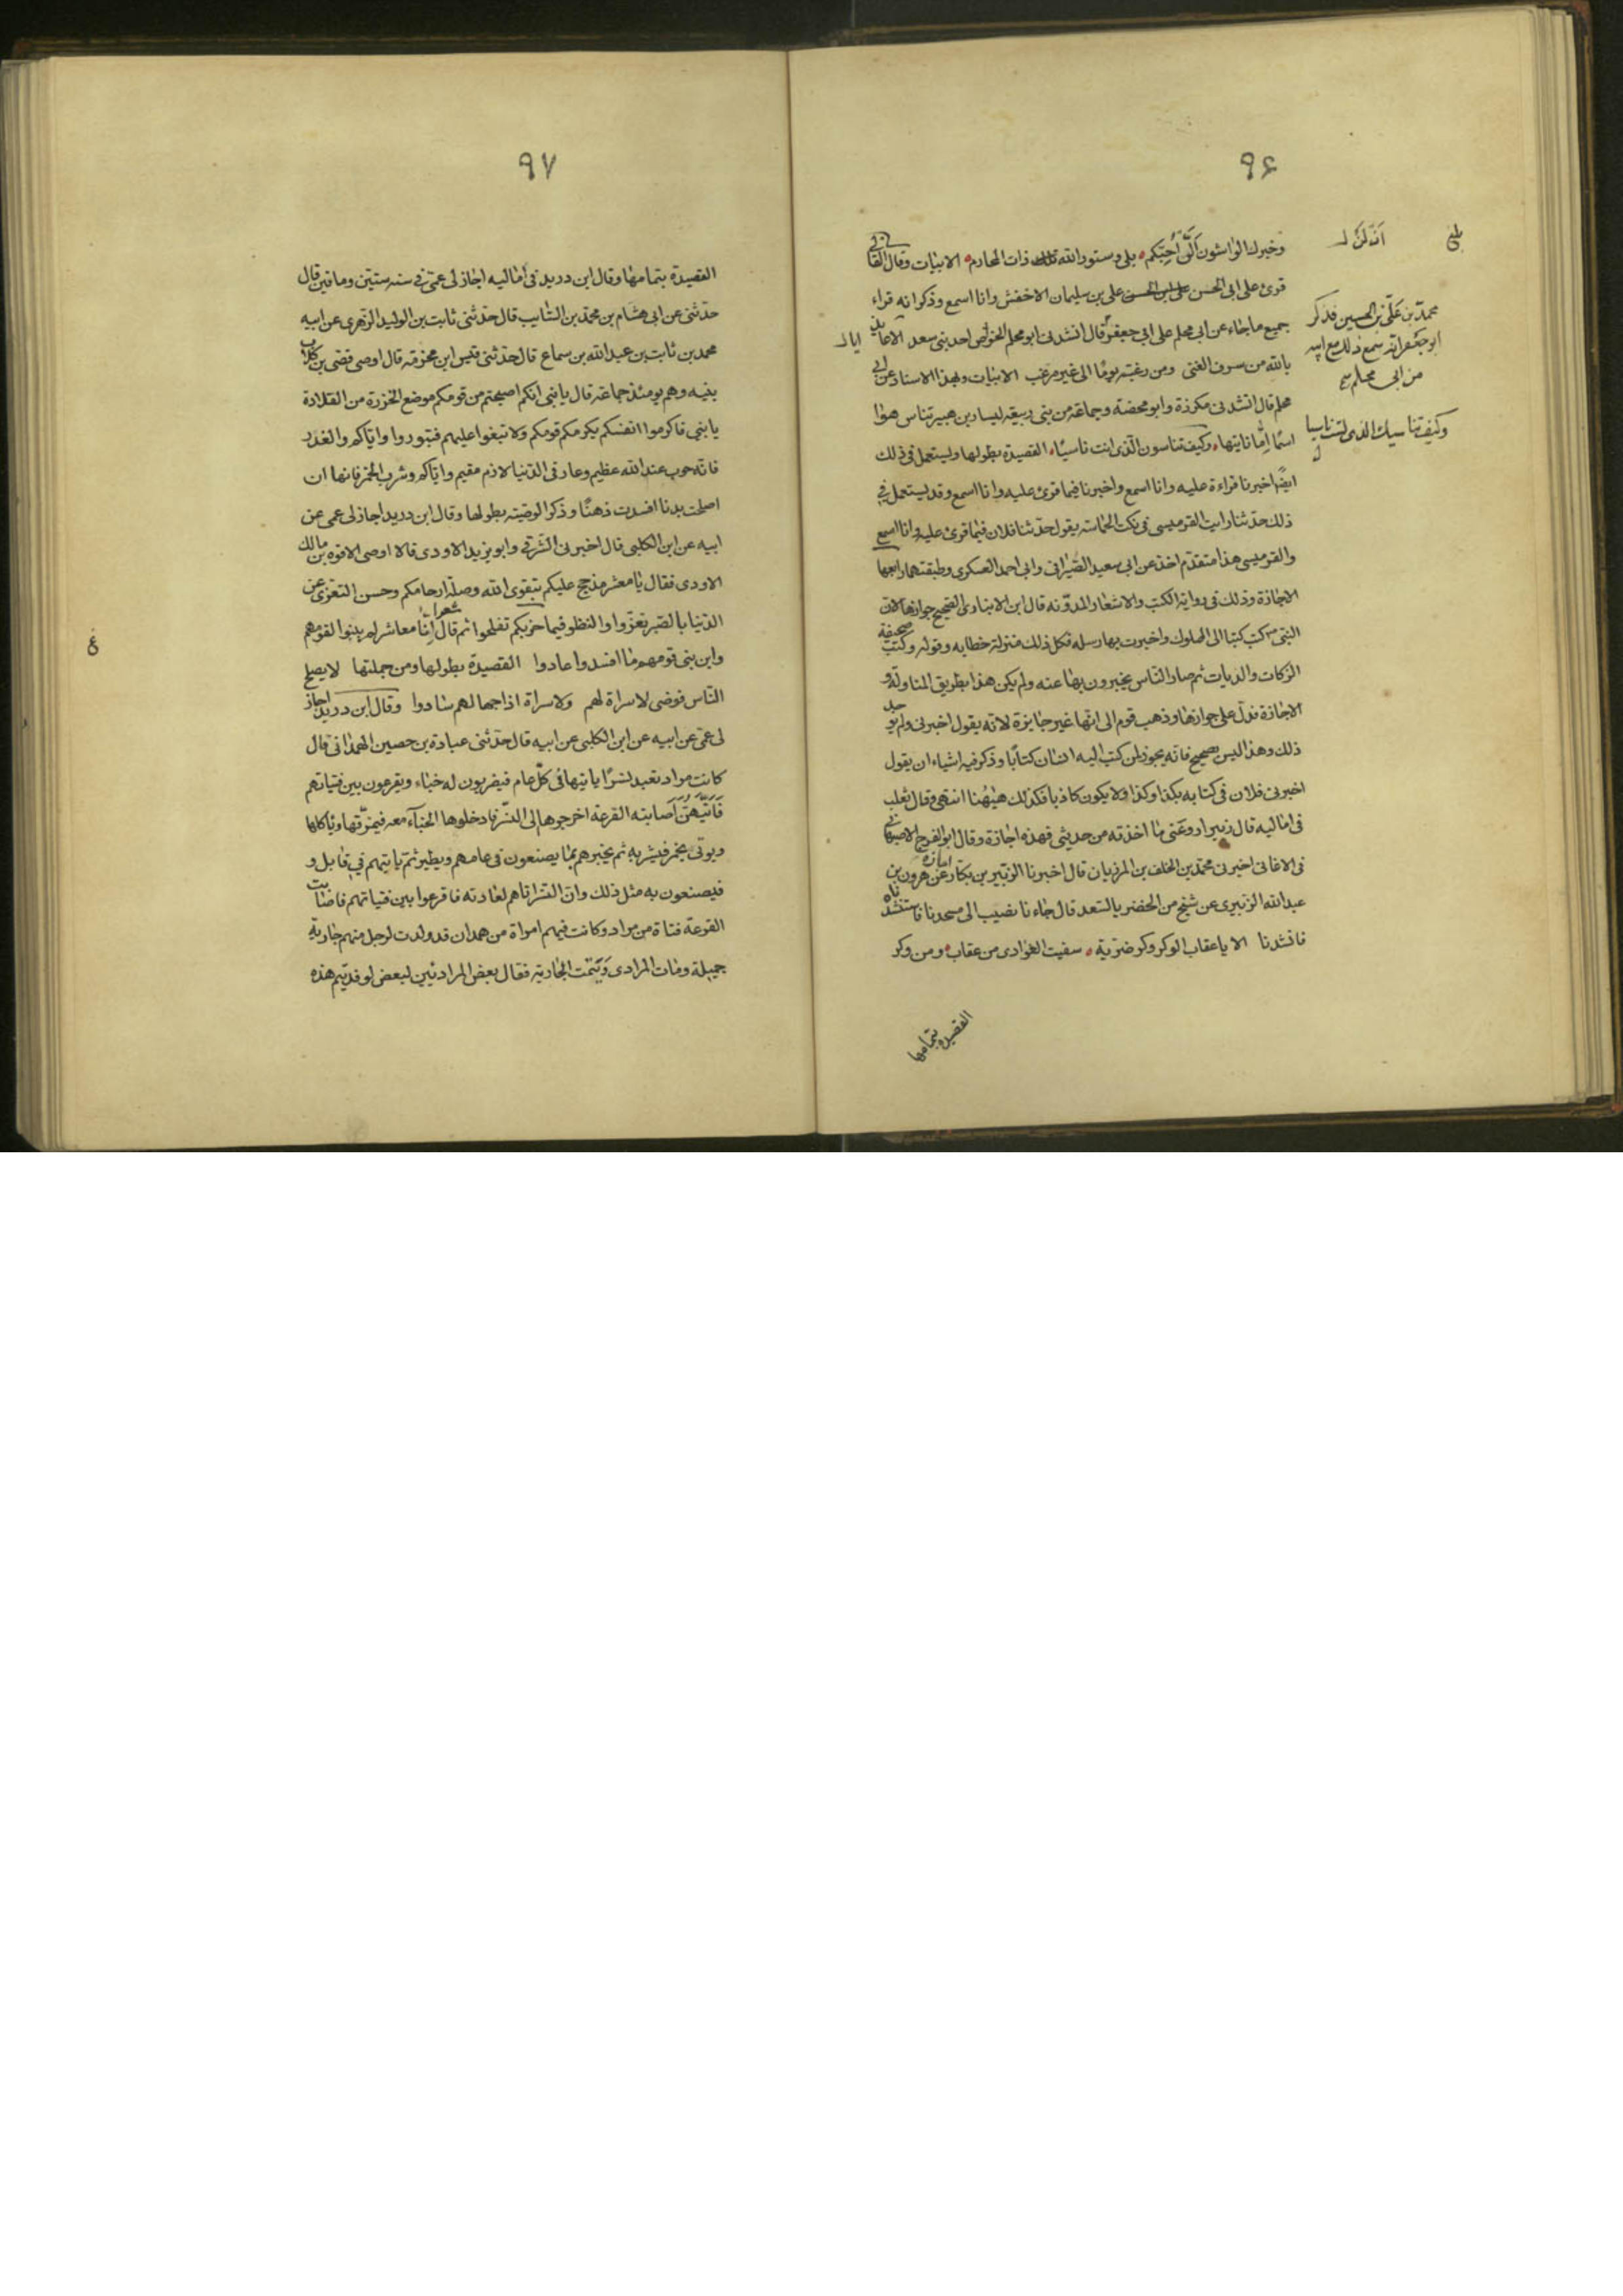 ٩٦
وخبرك الواشون ألّن أحبكم بلى وستور الله ذات المحارم الابيات وقال القالي
قرئ على ابى الحسن على بن سليمان الاخفش وانا اسمع وذكر انه قراء
جميع ما جاء عن ابى محلم على ابي جعفر قال انشدنى ابو محلم لخواص احد بنى سعد الا عائذ
بالله من سرف الغنى ومن رغبة يوما الى غير مرغب الابيات وبهذا الاسناد عن ابى
محلم قال انشدنى مكرزة وابو محضة وجماعة من بنى ربيعة ليسار بن هبير تناس هوا
اسما اما نايتها وكيف تناسون الّذى انت ناسيا القصيدة بطولها ويستعمل فى ذلك
ايضا اخبرنا قراءة عليه وانا اسمع واخبرنا فيما قرئ عليه وانا اسمع وقد يستعمل في
ذلك حدثنا رايت القرميسى فى نكت الحماسة يقول حدثنا فلان فيما قرئ عليه وانا اسمع
والقرميسى هذا متقدم اخذ عن ابى سعيد السيرافى وابى احمد العسكرى وطبقتهما رابعها
الاجازة وذلك فى رواية الكتب والاشعار المدوّنة قال ابن الانبارى الصحيح جوازها لان
النبى ص كتب كتبا الى الملوك واخبرت بها رسله فكل ذلك منزلة خطابه وقوله وكتب صحيفة
الزكات والديات ثم صار الناس يخبرون بها عنه ولم يكن هذا بطريق المناولة و
الاجازة فدل على جوازها وذهب قوم الى انها غير جايزة لانه يقول اخبرنى ولم يوجد
ذلك وهذا ليس صحيح فانه يجوز لمن كتب اليه انسان كتابا وذكر فيه اشياء ان يقول
اخبرنى فلان فى كتابه بكذا وكذا ولا يكون كاذبا فكذلك هيهنا انتهى وقال ثعلب
فى اماليه قال زبير ارو عنى ما اخذته من حديثى فهذه اجازة وقال ابو الفرج الاصبهانى
فى الاغانى اخبرنى محمد بن الخلف بن المرزبان قال اخبرنا الزبير بن بكار اجازة عن هرون بن
عبد الله الزبيرى عن شيخ من الخضر بالسعد قال جاءنا نصيب الى مسجدنا فاستنشدناه
فانشدنا الا يا عقاب الوكر وكر ضرية سقيت الغوادى من عقاب ومن وكر
القصيدة بتمامها
محمد بن على بن الحسين فذكر
ابو جعفر انه سمع ذلك مع ابيه
من ابى محلم
وكيف تناسيك الذى لست ناسيا
٩٧
القصيدة بتمامها وقال ابن دريد فى اماليه اجاز لى عمى في سنه ستين وماتين قال
حدثنى عن ابى هشام بن محمد بن السايب قال حدثنى ثابت بن الوليد الزهرى عن ابيه
محمد بن ثابت بن عبد الله بن سماع قال حدثنى قيس ابن مخزمة قال اوصى قصى بن كلاب
بنيه وهم يومئذ جماعة قال يا بنى انكم اصبحتم من قومكم موضع الخرزة من القلادة
يا بنى فاكرموا انفسكم يكرمكم قومكم ولا تبغوا عليهم فتبوروا واياكم والغدر
فانه حوب عند الله عظيم وعار فى الدنيا لازم مقيم واياكم وشرب الخمر فانها ان
اصلحت بدنا افسدت ذهنا وذكر الوصية بطولها وقال ابن دريد اجاز لى عمى عن
ابيه عن ابن الكلبى قال اخبرنى الشرقى وابو يزيد الاودى قالا اوصى الافوه بن مالك
الاودى فقال يا معشر مذحج عليكم بتقوى الله وصلة ارحامكم وحسن التعزى عن
الدنيا بالصبر تعزّوا والنظر فيما حزبكم تفلحوا ثم قال شعرا انّا معاشر لم يبنوا لقومهم
وابن بنى قومهم ما افسدوا عادوا القصيدة بطولها ومن جملتها لا يصلح
الناس فوضى لا سراة لهم ولا سراة اذا جهالهم سادوا وقال ابن دريد اجاز
لى عمى عن ابيه عن ابن الكلبى عن ابيه قال حدثنى عبادة بن حصين الهمدانى قال
كانت مراد تعبد نسرا ياتيها فى كل عام فيضربون له خباء ويقرعون بين فتياتهم
فايّتهن اصابته القرعة اخرجوها الى النسر فادخلوها الخباء معه فيمزقها وياكلها
ويوتى بخمر فيشربه ثم يخبرهم بما يصنعون فى عامهم ويطير ثم ياتيهم في قابل و
فيصنعون به مثل ذلك وان النسر اتاهم لعادته فاقرعوا بين فتياتهم فاصابت
القرعة فتاة من مراد وكانت فيهم امراة من همدان قد ولدت لرجل منهم جارية
جميلة ومات المرادى ويتمت الجارية فقال بعض المراديين لبعض لو فديتم هذه